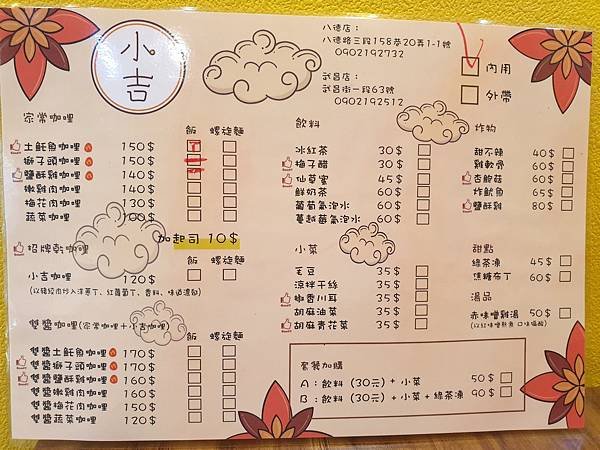 小吉
八德店：
八德路三段158巷20弄1-1號
0902192732
武昌店：
武昌街一段63號
0902192512
內用
外帶
家常咖哩
飯 螺旋麵
土魠魚咖哩 150$
獅子頭咖哩 150$
鹽酥雞咖哩 140$
嫩雞肉咖哩 140$
梅花肉咖哩 130$
蔬菜咖哩 100$
加起司 10$
招牌乾咖哩
飯 螺旋麵
小吉咖哩 120$
(以豬絞肉炒入洋蔥丁、紅蘿蔔丁、香料、味道濃郁)
雙醬咖哩(家常咖哩+小吉咖哩)
飯 螺旋麵
雙醬土魠魚咖哩 170$
雙醬獅子頭咖哩 170$
雙醬鹽酥雞咖哩 160$
雙醬嫩雞肉咖哩 160$
雙醬梅花肉咖哩 150$
雙醬蔬菜咖哩 120$
飲料
冰紅茶 30$
梅子醋 30$
仙草蜜 45$
鮮奶茶 60$
葡萄氣泡水 60$
蔓越莓氣泡水 60$
小菜
毛豆 35$
涼拌干絲 35$
椒香川耳 35$
胡麻油菜 35$
胡麻青花菜 35$
炸物
甜不辣 40$
雞軟骨 60$
杏鮑菇 60$
炸魷魚 65$
鹽酥雞 80$
甜點
綠茶凍 45$
焦糖布丁 60$
湯品
赤味噌雞湯 50$
套餐加購
A：飲料 (30元) + 小菜 50$
B：飲料 (30元) + 小菜 + 綠茶凍 90$